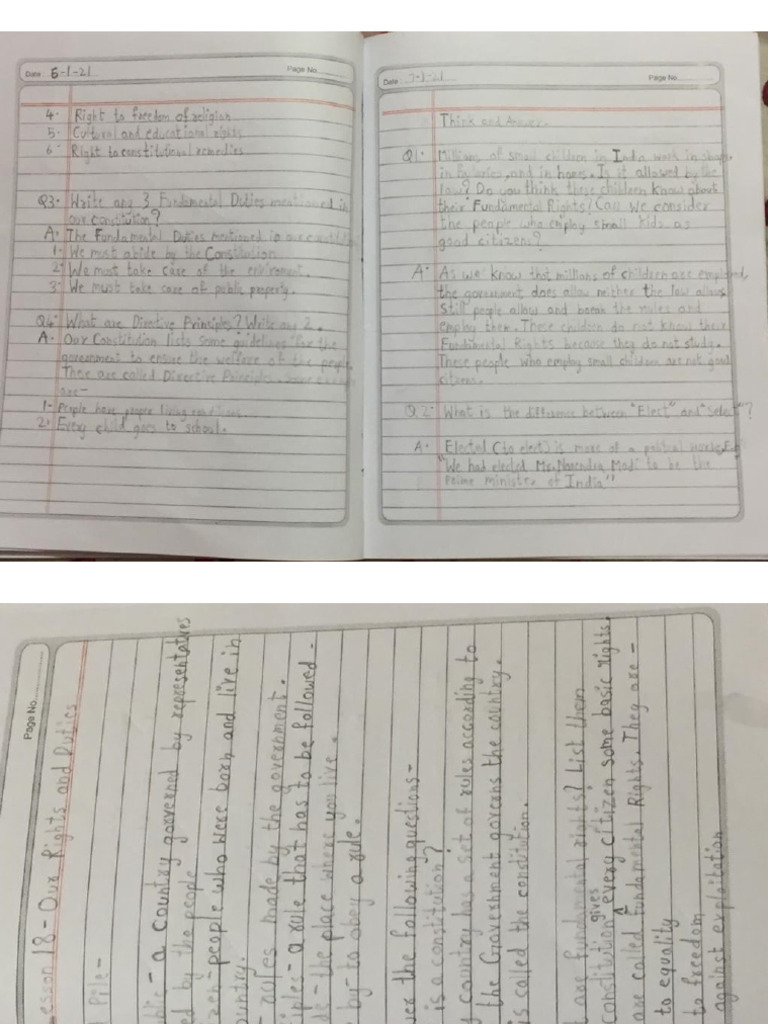 Date 6-1-21 Page No.
4. Right to freedom of religion
5. Cultural and educational rights
6. Right to constitutional remedies
Q3. Write any 3 Fundamental Duties mentioned in
our constitution?
A. The Fundamental Duties mentioned in our
1. We must abide by the Constitution
2. We must take care of the
3. We must take care of public property.
Q4. What are Directive Principles? Write any 2.
A. Our Constitution lists some guidelines for the
government to ensure the welfare of the people
These are called Directive Principles. Some
are-
1. People have proper living conditions
2. Every child goes to school.
Date 7-1-21 Page No.
Think and Answer.
Q1. Millions of small children in India work in shops,
in , and in homes. Is it allowed by the
law? Do you think these children know about
their Fundamental Rights? Can we consider
the people who employ small kids as
good citizens?
A. As we know that millions of children are employed,
the government does allow neither the law allows
Still people allow and the rules and
employ them. These children do not know their
Fundimental Rights because they do not study.
These people who employ small children are not good
citizens.
Q.2. What is the difference between "Elect" and "Select"?
A. Elected (to elect) is more of a political
"We had elected Mr. Narendra Modi to be the
Prime minister of India"
Page No.
esson 18- Our Rights and Duties
Pile-
blic- a country governed by representatives
ed by the people
zen- people who were born and live in
ountry.
rules made by the government.
iples- a rule that has to be followed-
de- the place where you live.
by- to obey a rule.
wer the following questions-
is a constitution?
country has a set of rules according to
the Government governs the country.
is called the constitution.
t are fundamental rights? List them
constitution gives every citizen some basic rights.
are called fundamental Rights. They are-
to equality
to freedom
against exploitation